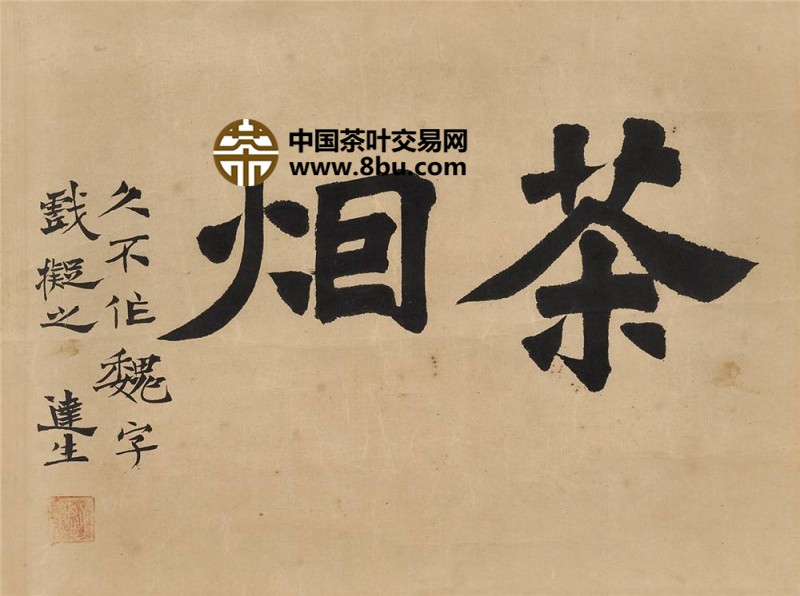 茶烟
久不作魏字
戲擬之 達生
中国茶叶交易网
www.8bu.com